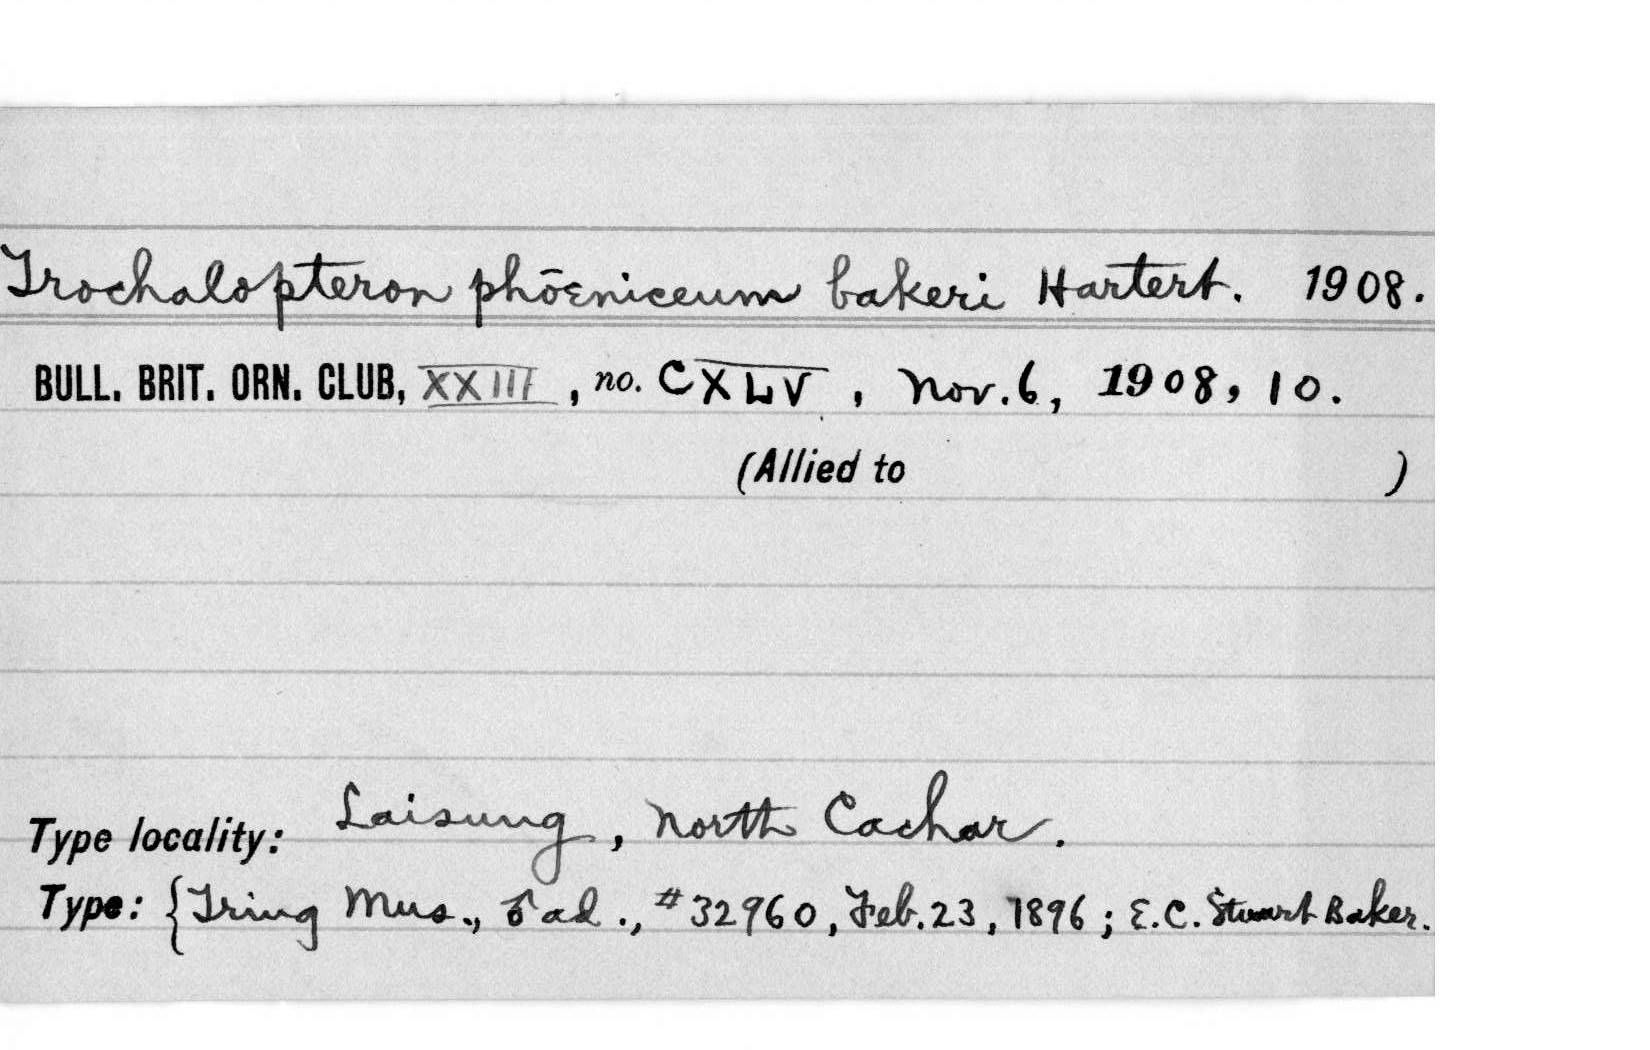 Trochalopteron phōeniceum bakeri Hartert. 1908.
BULL. BRIT. ORN. CLUB, XXIII, no. CXLV, Nov. 6, 1908, 10.
(Allied to )
Type locality: Laisung, North Cachar.
Type: {Tring Mus., ♂ ad., #32960, Feb. 23, 1896; E.C. Stuart Baker.